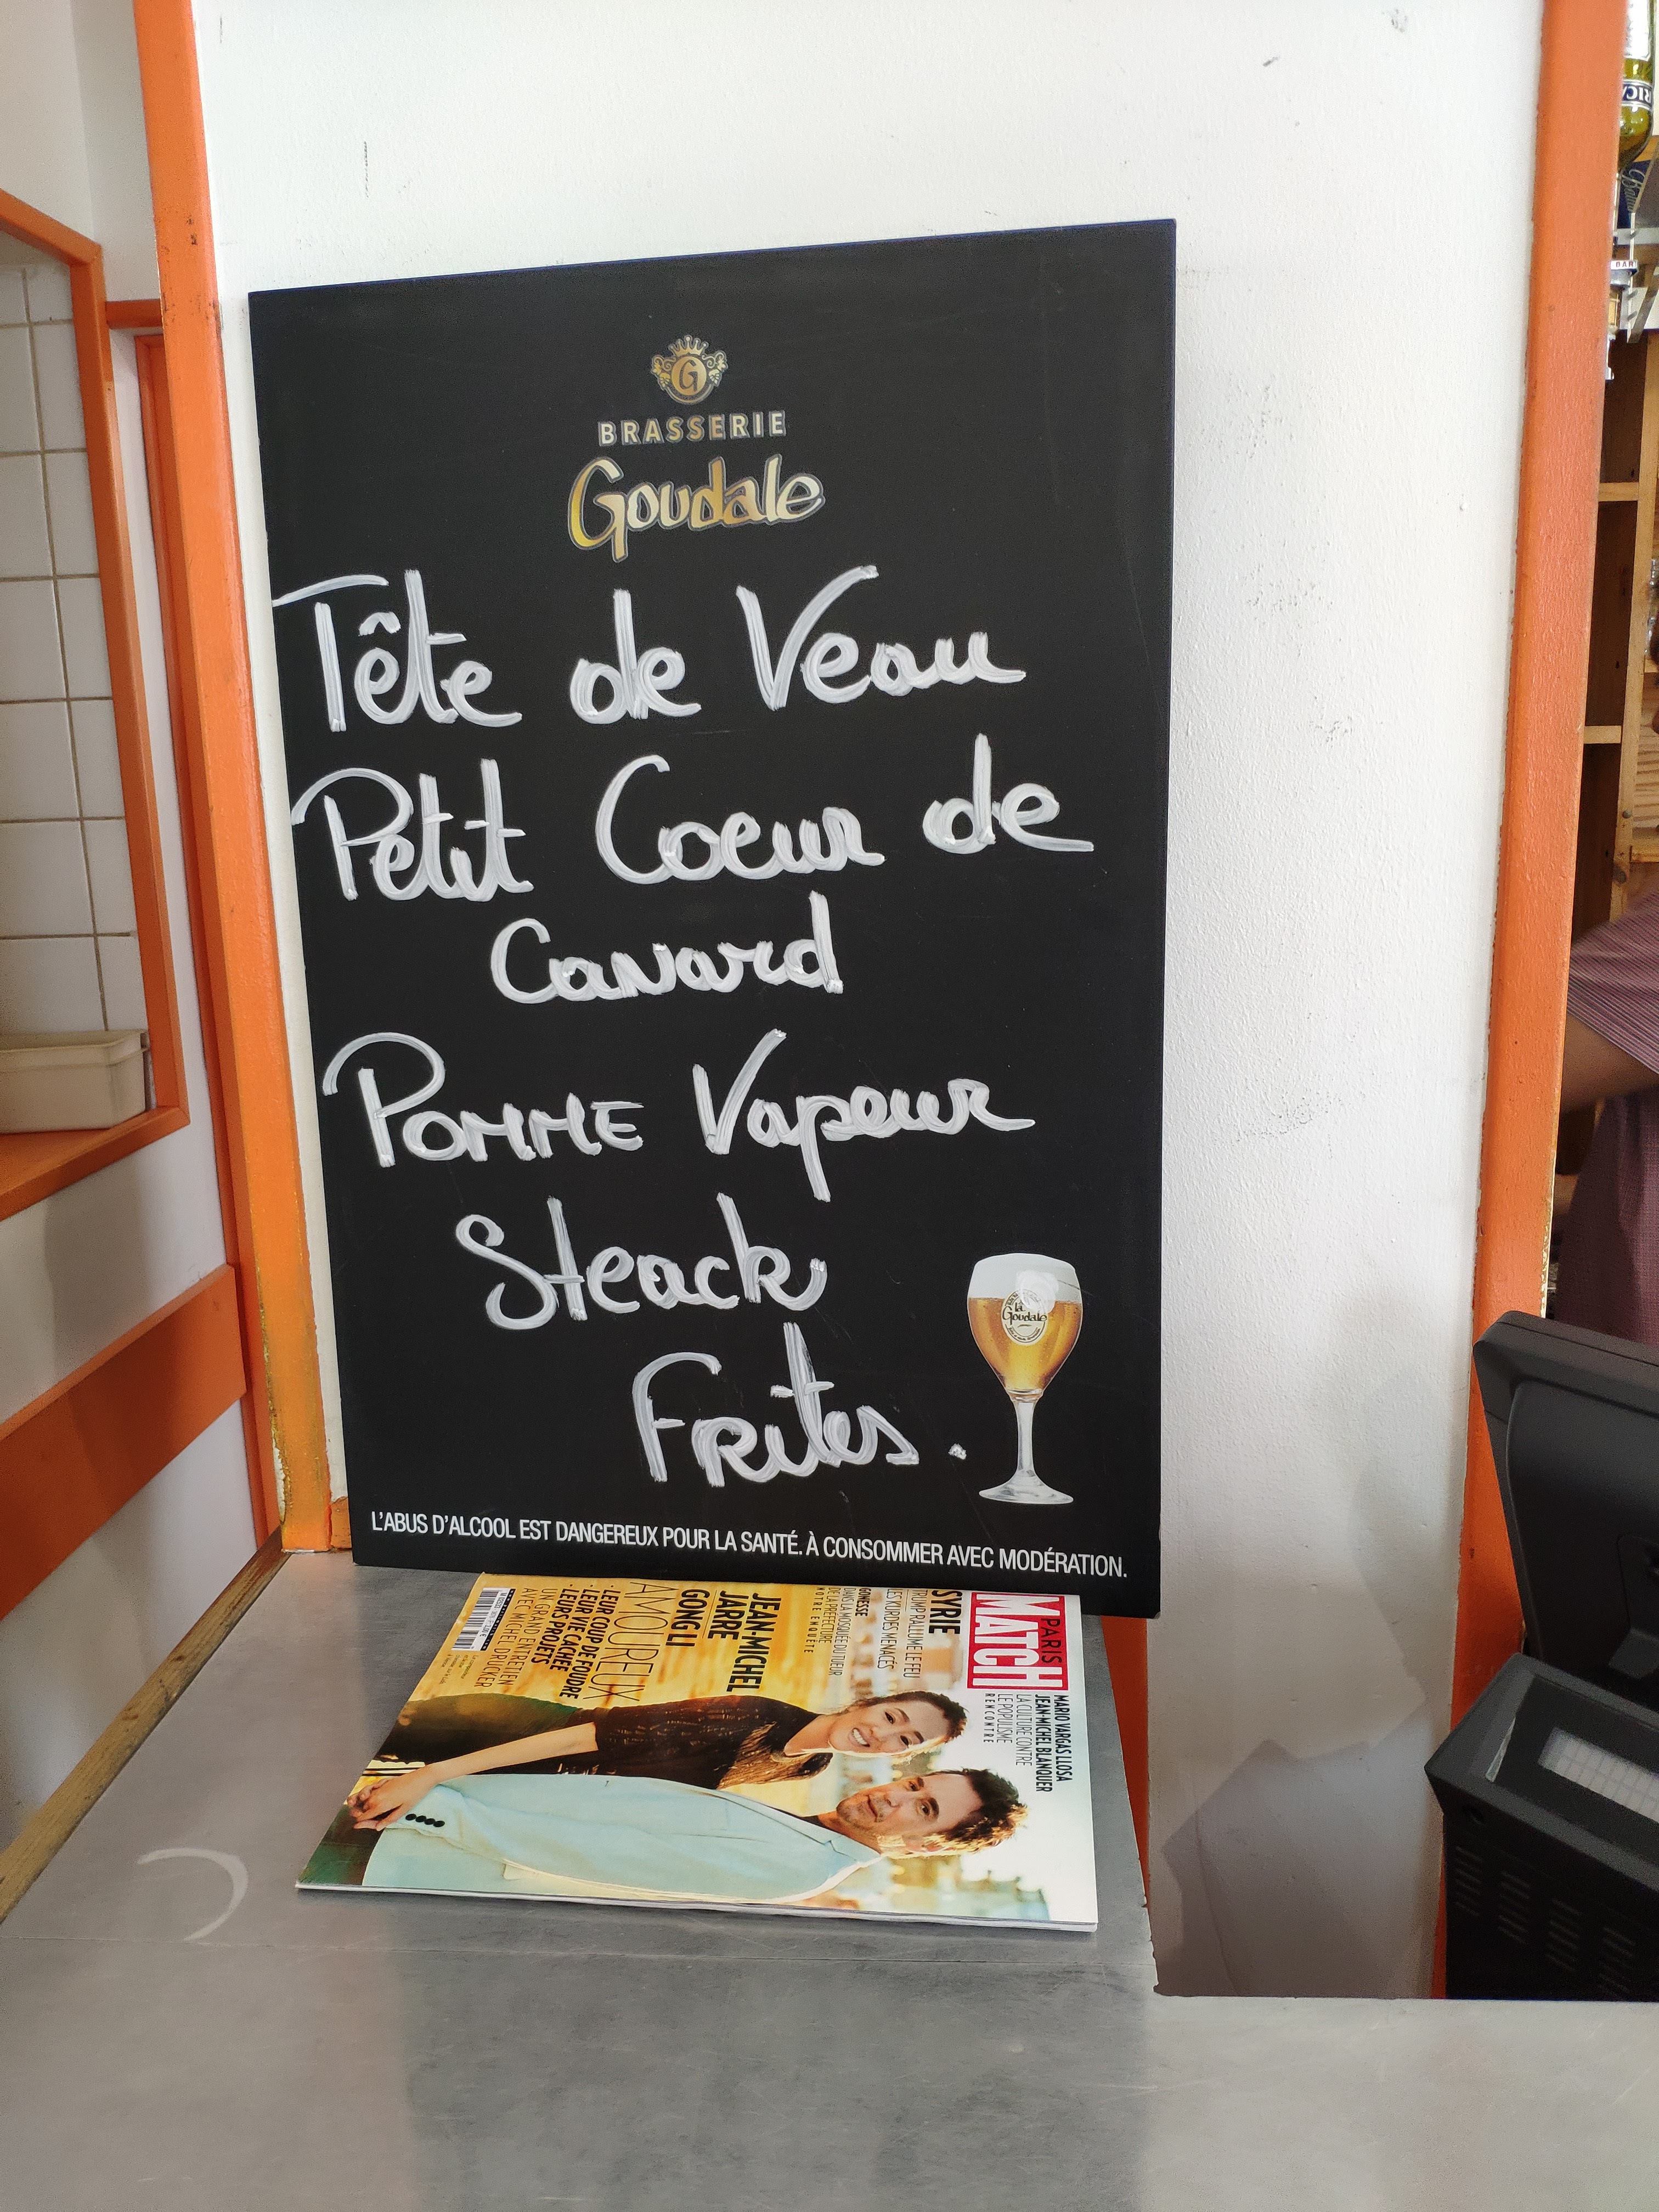 BRASSERIE
Goudale
Tête de Veau
Petit Coeur de
Canard
Pomme Vapeur
Steack
Frites.
la
Goudale
L'ABUS D'ALCOOL EST DANGEREUX POUR LA SANTÉ. À CONSOMMER AVEC MODÉRATION.
PARIS
MATCH
MARIO VARGAS LLOSA
JEAN-MICHEL BLANQUER
LA CULTURE CONTRE
LE POPULISME
RENCONTRE
SYRIE
TRUMP RALLUME LE FEU
LES KURDES MENACÉS
GONESSE
DANS LA MOSQUÉE DU TUEUR
DE LA PRÉFECTURE
NOTRE ENQUÊTE
JEAN-MICHEL
JARRE
GONG LI
AMOUREUX
• LEUR COUP DE FOUDRE
• LEUR VIE CACHÉE
• LEURS PROJETS
UN GRAND ENTRETIEN
AVEC MICHEL DRUCKER
BAR